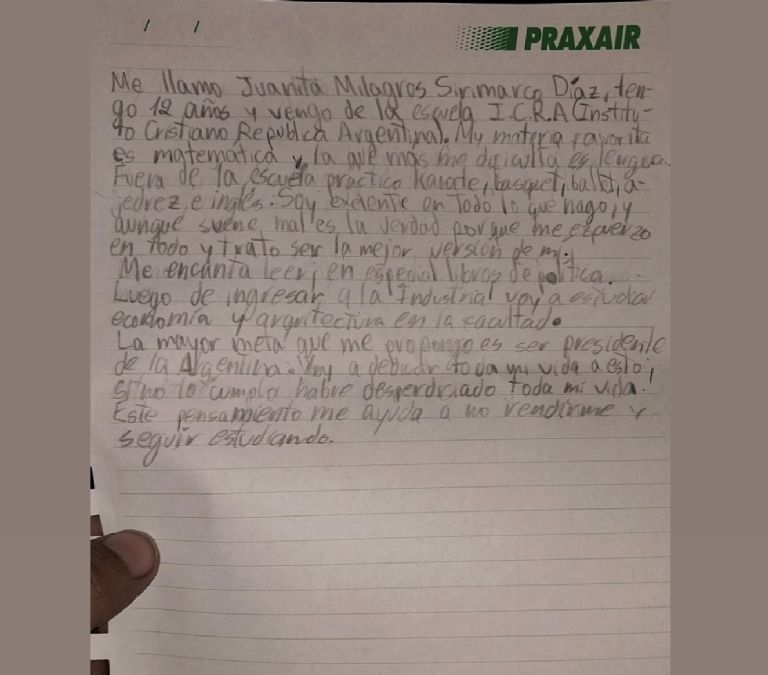 / /
PRAXAIR
Me llamo Juanita Milagros Sirimarco Díaz, ten-
go 12 años y vengo de la escuela I.C.R.A (Institu-
to Cristiano Republica Argentina). My materia favorita
es matematica y la que más me dificulta es lengua.
Fuera de la escuela practico Karate, basquet, ballet, a-
jedrez e inglés. Soy exelente en todo lo que hago, y
aunque suene mal es la verdad porque me esfuerzo
en todo y trato ser la mejor versión de mi.
Me encanta leer, en especial libros de política.
Luego de ingresar a la Industrial voy a estudiar
economía y arquitectura en la facultad.
La mayor meta que me propongo es ser presidente
de la Argentina. Voy a dedicar toda mi vida a esto,
si no lo cumplo habre desperdiciado toda mi vida.
Este pensamiento me ayuda a no rendirme y
seguir estudiando.